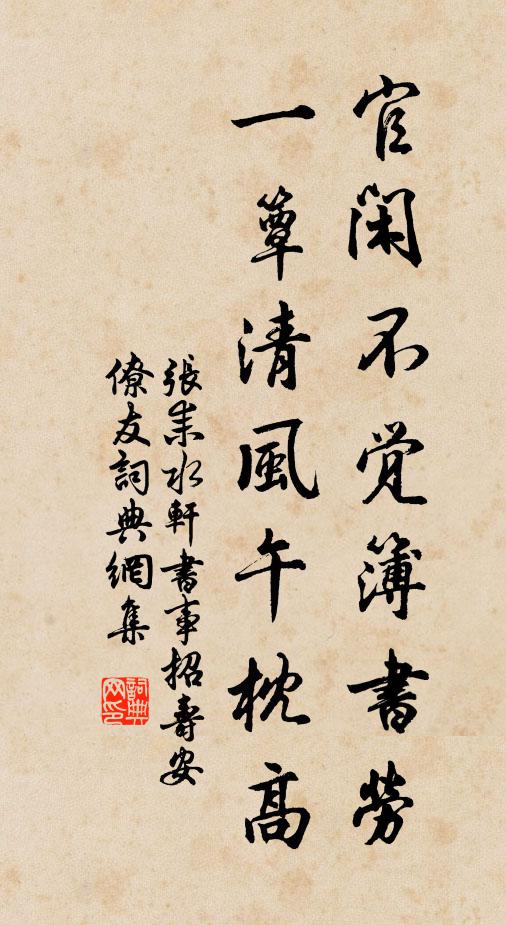 官闲不觉簿書勞
一簟清風午枕高
張耒水軒書事招壽安
僚友詞典網集
詞典网印